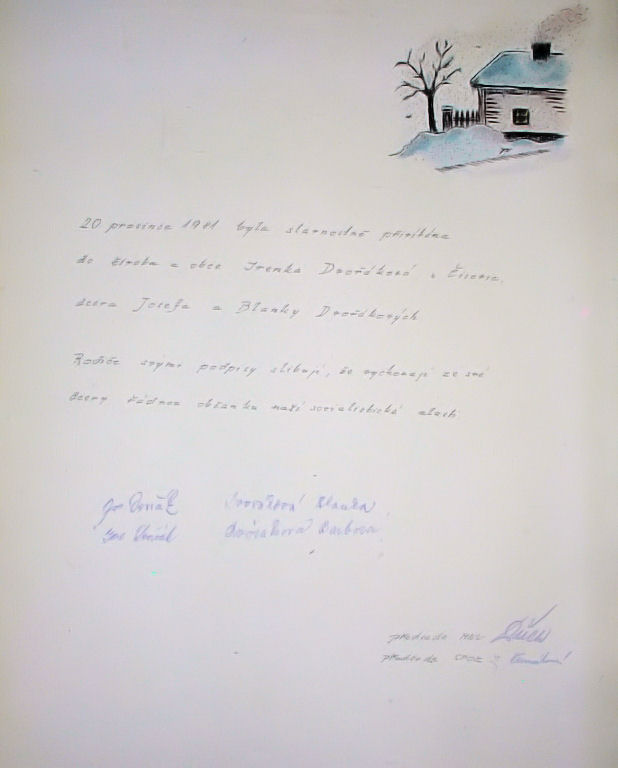 20 prosince 1981 byla slavnostně přivítána
do života a obce Irenka Dvořáková z
dcera Josefa a Blanky Dvořákových
Rodiče svými podpisy slibují, že vychovají ze své
dcery řádnou občanku naší socialistické vlasti
Jos Dvořák Dvořáková Blanka
Jos Dvořák Dvořáková Barbora
předseda MNV
předseda SPOZ